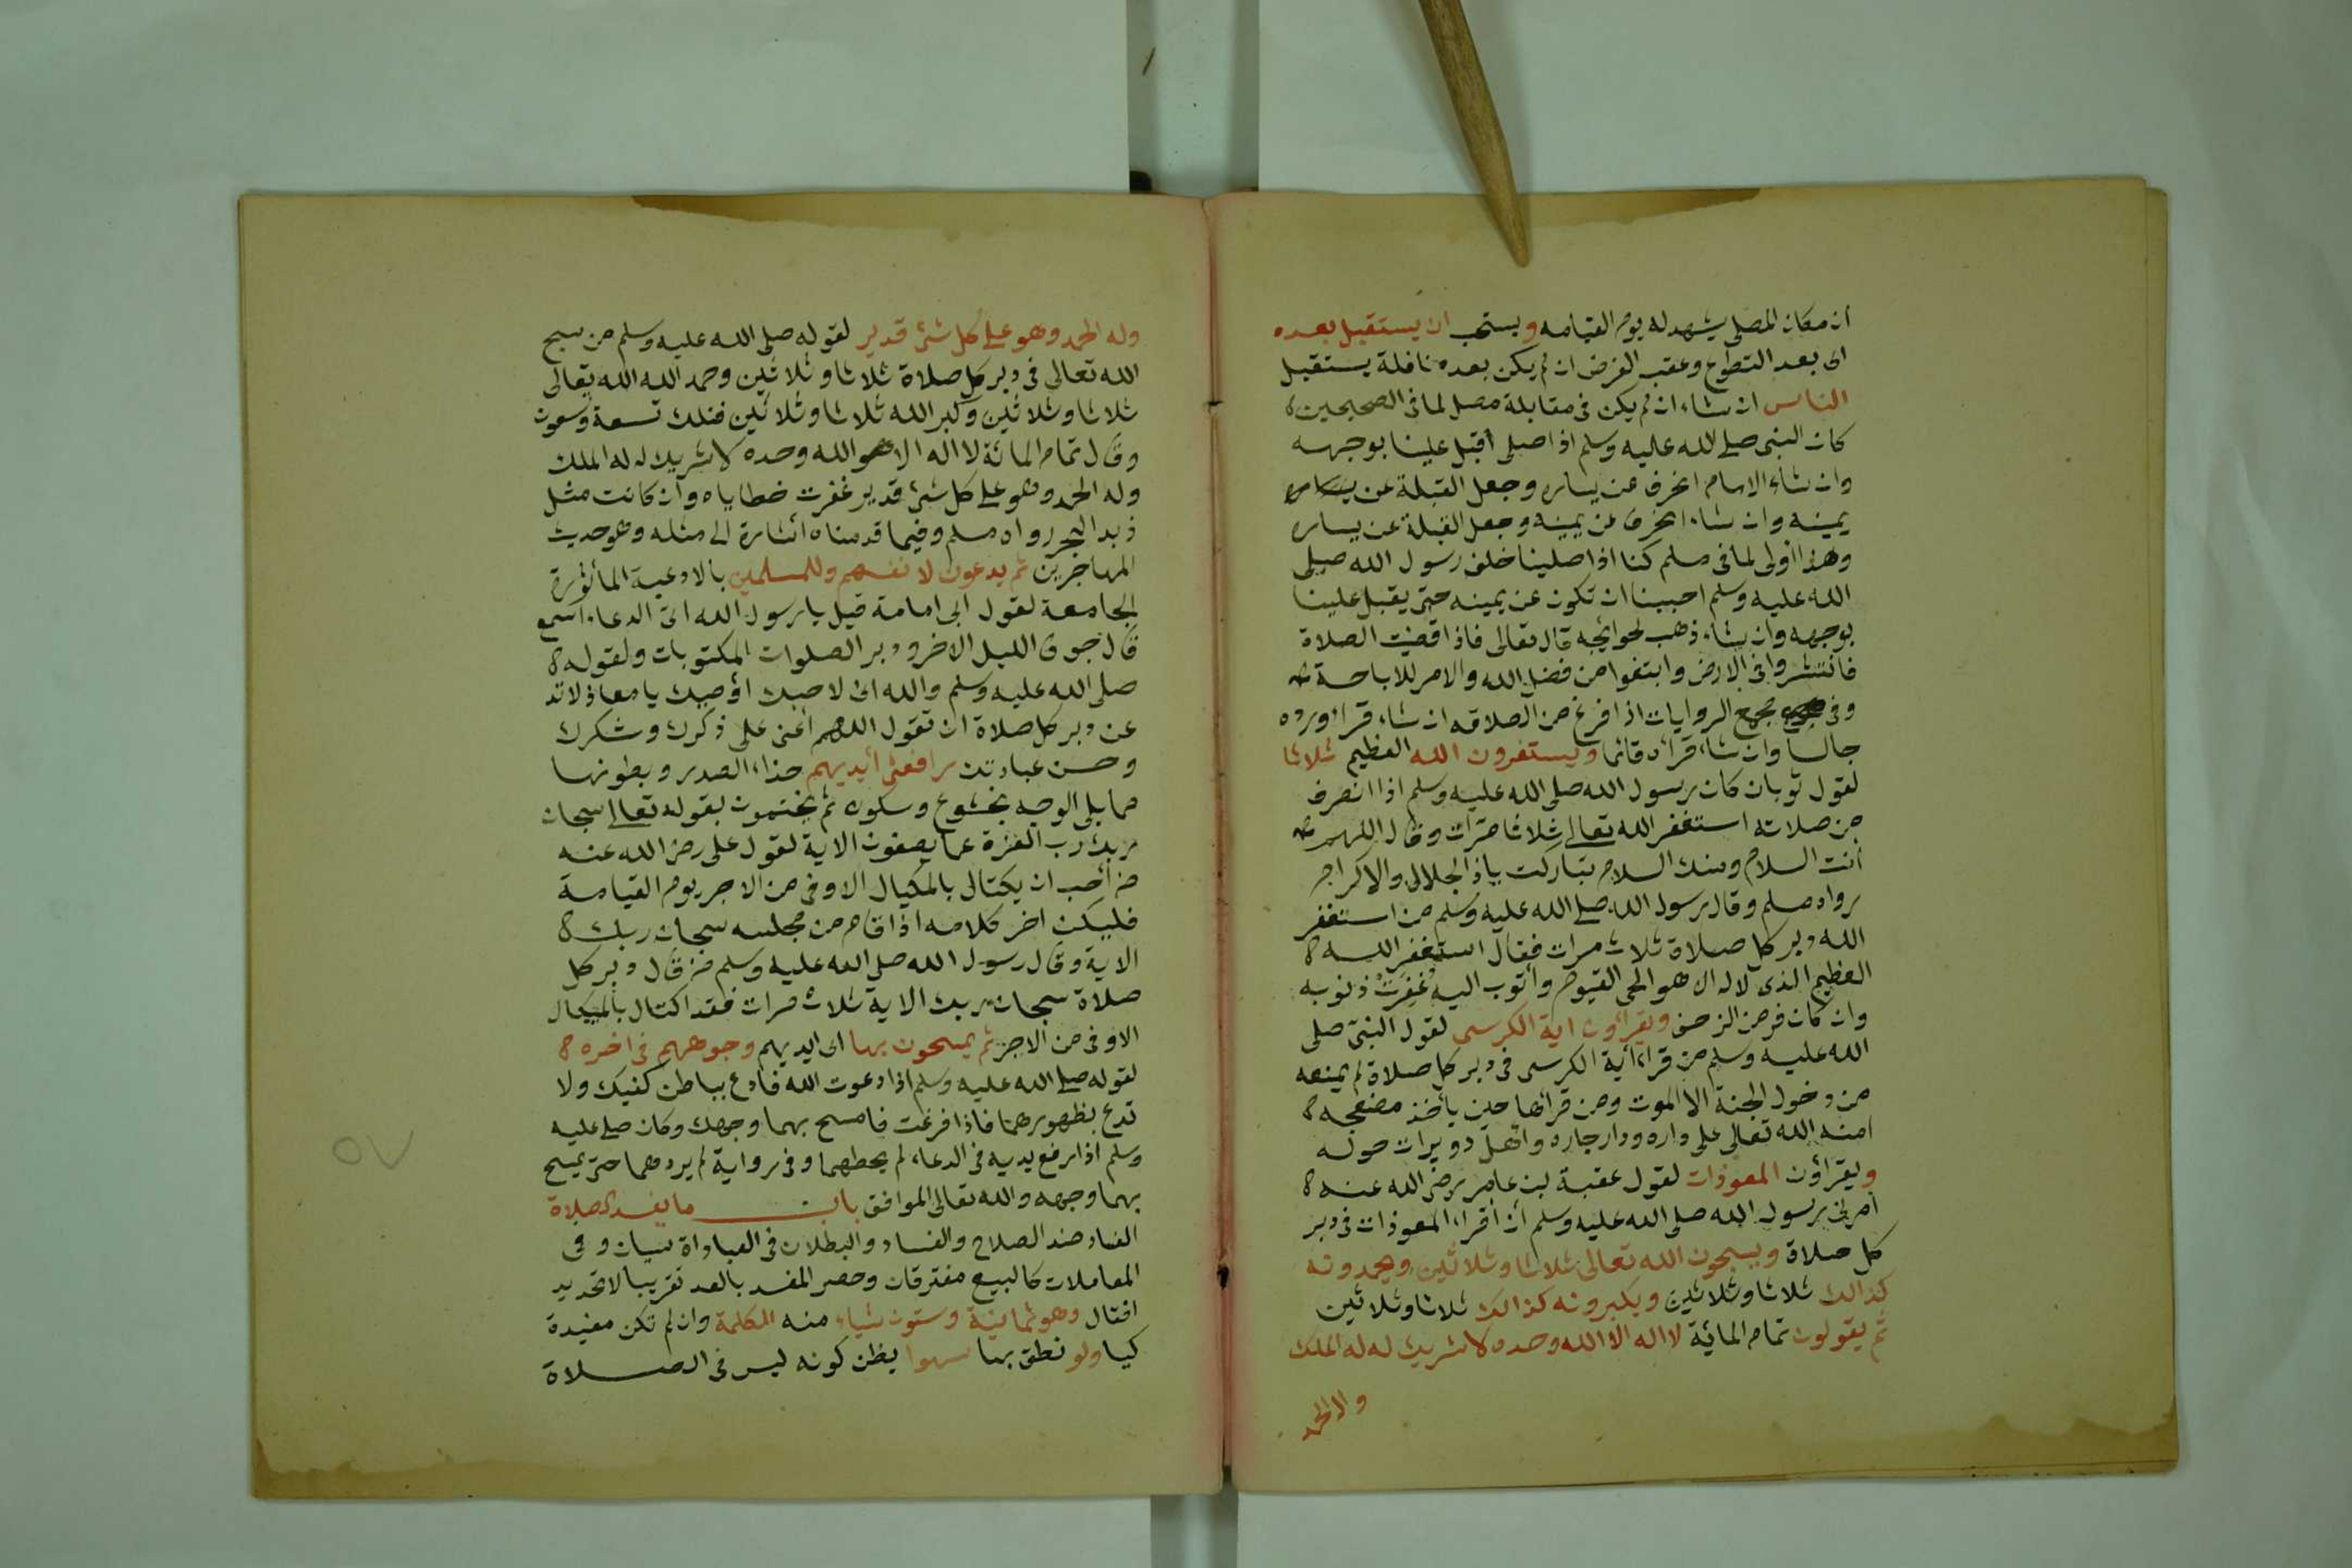 ان مكان المصلى يشهد له يوم القيامه ويستحب ان يستقبل بعده
اى بعد التطوع وعقب الفرض ان لم يكن بعده نافلة يستقبل
الناس ان شاء ان لم يكن فى مقابلة مصل لما فى الصحيحين
كان النبى صلى الله عليه وسلم اذا صلى أقبل علينا بوجهه
وان شاء الامام انحرف عن يساره وجعل القبلة عن
يمينه وان شاء انحرف عن يمينه وجعل القبلة عن يساره
وهذا اولى لما فى مسلم كنا اذا صلينا خلف رسول الله صلى
الله عليه وسلم احببنا ان نكون عن يمينه حتى يقبل علينا
بوجهه وان شاء ذهب لحوائجه قال تعالى فاذا قضيت الصلاة
فانتشروا فى الارض وابتغوا من فضل الله والامر للاباحة
وفى مجمع الروايات اذا فرغ من الصلاته ان شاء قرأ ورده
جالسا وان شاء قرأه قائما ويستغفرون الله العظيم ثلاثا
لقول ثوبان كان رسول الله صلى الله عليه وسلم اذا انصرف
من صلاته استغفر الله تعالى ثلاثا مرات وقال اللهم
أنت السلام ومنك السلام تباركت ياذا الجلال والاكرام
رواه مسلم وقال رسول الله صلى الله عليه وسلم من استغفر
الله دبر كل صلاة ثلاث مرات فقال استغفر الله
العظيم الذى لاله الا هو الحى القيوم وأتوب اليه غُفِرَتْ ذنوبه
وان كان فر من الزحف ويقرأون اية الكرسى لقول النبى صلى
الله عليه وسلم من قراء أية الكرسى فى دبر كل صلاة لم يمنعه
من دخول الجنة الا الموت ومن قرأها حين يأخذ مضجعه
امنه الله تعالى على داره ودار جاره واهل دويرات حوله
ويقرأون المعوذات لقول عقبة بن عامر رضى الله عنه
أمرنى رسول الله صلى الله عليه وسلم أن أقراء المعوذات فى دبر
كل صلاة ويسبحون الله تعالى ثلاثا وثلاثين ويحمدونه
كذالك ثلاثا وثلاثين ويكبرونه كذالك ثلاثا وثلاثين
ثم يقولون تمام المائية لا اله الا الله وحده لا شريك له له الملك
وله الحمد
وله الحمد وهو على كل شئ قدير لقوله صلى الله عليه وسلم من سبح
الله تعالى فى دبر كل صلاة ثلاثا وثلاثين وحمد الله الله تعالى
ثلاثا وثلاثين وكبر الله ثلاثا وثلاثين فتلك تسعة وتسعون
وقال تمام المائة لا اله الا هو الله وحده لا شريك له له الملك
وله الحمد وهو على كل شئ قدير غفرت خطاياه وأن كانت مثل
زبد البحر رواه مسلم وفيما قدمناه أشارة الى مثله وهو حديث
المهاجرين ثم يدعون لانفسهم وللمسلمين بالادعية المأثورة
الجامعة لقول ابى امامة قيل يا رسول الله اى الدعاء اسمع
قال جوف الليل الاخر ودبر الصلوات المكتوبات ولقوله
صلى الله عليه وسلم والله انى لاحبك اوصيك يا معاذ لا تد
عن دبر كل صلاة ان تقول اللهم أعنى على ذكرك وشكرك
وحسن عبادتك رافعى أيديهم حذاء الصدر وبطونها
مما يلى الوجه بخشوع وسكون ثم يختمون بقوله تعالى سبحان
ربك رب العزة عما يصفون الاية لقول على رضى الله عنه
من أحب ان يكتال بالمكيال الاوفى من الاجر يوم القيامة
فليكن اخر كلامه اذا قام من مجلسه سبحان ربك
الاية وقال رسول الله صلى الله عليه وسلم من قال دبر كل
صلاة سبحان ربك الاية ثلاث مرات فقد اكتال بالميكال
الاوفى من الاجر ثم يمسحون بها اى ايديهم وجوههم فى اخره
لقوله صلى الله عليه وسلم اذا دعوت الله فادع بباطن كفيك ولا
تدع بظهورهما فاذا فرغت فامسح بهما وجهك وكان صلى عليه
وسلم اذا رفع يديه فى الدعاء لم يحطهما وفى رواية لم يردهما حتى يمسح
بهما وجهه والله تعالى الموافق باب ما يفسد الصلاة
الفساد ضد الصلاح والفساد والبطلان فى العباداة سيان وفى
المعاملات كالبيع مفترقان وحصر المفسد بالعد تقريبا لا تحديد
افقال وهو ثمانية وستون شياء منه الكلمة وان لم تكن مفيدة
كيا ولو نطق بها سهوا يظن كونه ليس فى الصلاة
٥٧